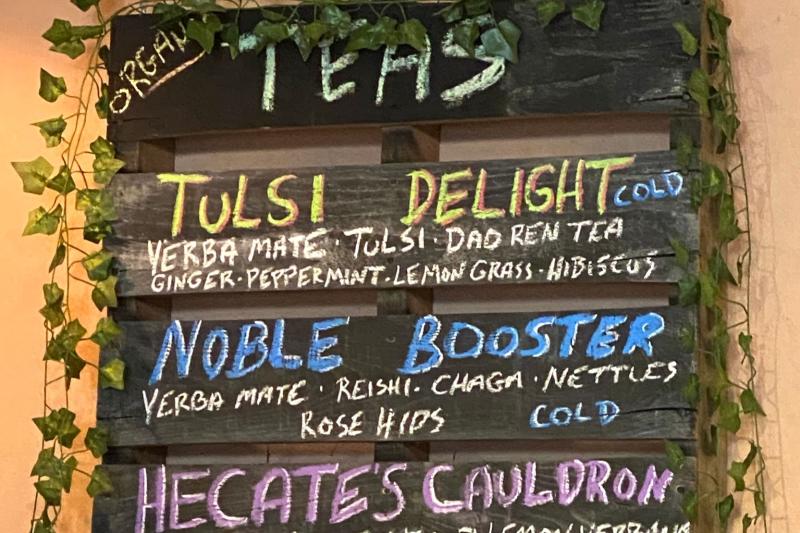 TEAS
TULSI DELIGHT COLD
YERBA MATE · TULSI · DAO REN TEA
GINGER · PEPPERMINT · LEMON GRASS · HIBISCUS
NOBLE BOOSTER
YERBA MATE · REISHI · CHAGA · NETTLES
ROSE HIPS COLD
HECATE'S CAULDRON
LEMON VERBANA